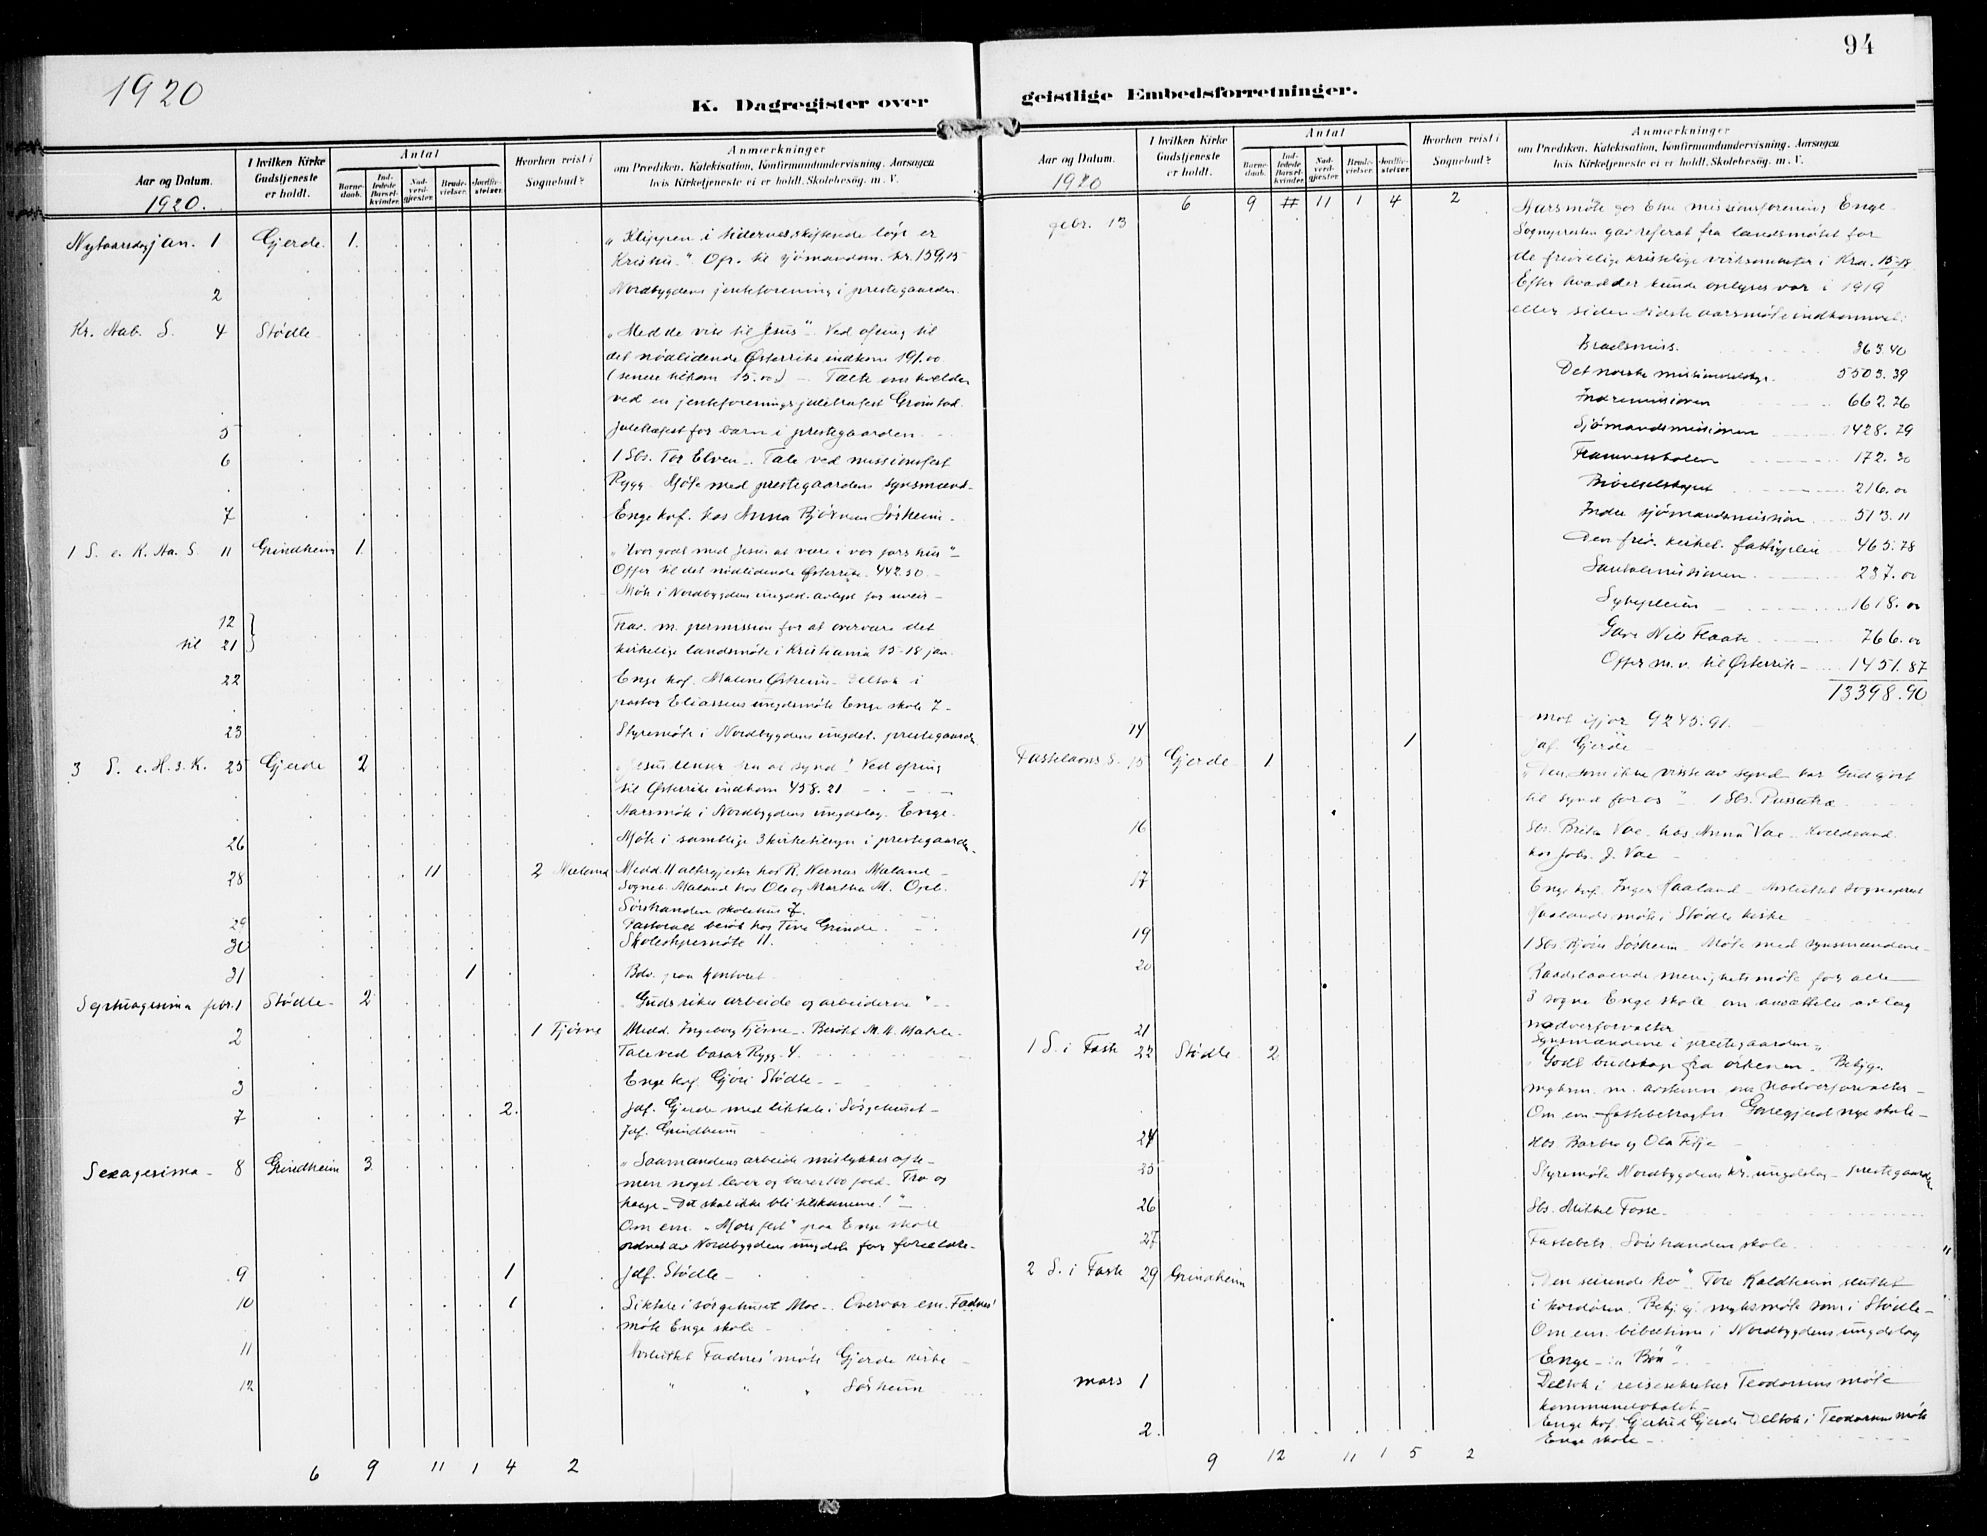 94
1920
K. Dagregister over geistlige Embedsforretninger.
Aar og Datum.
1920.
I hvilken Kirke Gudstjeneste er holdt.
Antal
Barnedaab.
Indledede Barselkvinder.
Nadverdgjester.
Brudevielser.
Jordfæstelser.
Hvorhen reist i Sognebud?
Anmærkninger
om Prædiken, Katekisation, Konfirmandundervisning, Aarsagen
hvis Kirketjeneste ei er holdt, Skolebesøg, m. V.
Nytaarsdag jan. 1 Gjerde 1. „Klippen i tidernes skiftende løp er
Kristus." Ofr. til sjømandsm. kr. 159,15
2 Nordbygdens jenteforening i prestegaarden.
Kr. Aab. S. 4 Stødle „Med de vise til Jesus". Ved ofring til
det nødlidende Østerrike indkom 191.00
(senere tilkom 15.00) – Talte om kvelden
ved en jenteforenings juletrefest Grimstad.
5 Juletræfest for barn i prestegaarden.
6 1 Sbs. Tor Elven. Tale ved missionsfest
Rygg. Møte med prestegaardens synsmænd.
7 Enge kof. hos Anna Bjørnsen Sørheim.
1 S. e. K. Aa. S. 11 Grindheim 1. „Hvor godt med Jesus at være i vor fars hus"
Offer til det nødlidende Østerrike 442.50
Møte i Nordbygdens ungdsl. avlyst for uveir
12
til 21 Frav. m. permission for at overvære det
kirkelige landsmøte i Kristiania 15–18 jan.
22 Enge kof. Malene Østreim. Deltok i
pastor Eliassens ungdsmøte Enge skole 7
23 Styremøte i Nordbygdens ungdsl. prestegaarden
3 S. e. H. 3 K. 25 Gjerde 2 „Jesus renser fra al synd! Ved ofring
til Østerrike indkom 458.21
Aarsmøte i Nordbygdens ungdslag. Enge.
26 Møte i samtlige 3 kirketilsyn i prestegaarden.
28 11 2 Mæland Medd. 11 altergjester hos R. Mæland
Sogneb. Mæland hos Ole og Martha M. Opl.
Sørstranden skolehus 7.
29 Pastoralt besøk hos Tine Grinde.
30 Skolestyremøte 11.
31 1 Bdv. paa kontoret
Septuagesima febr. 1 Stødle 2 „Guds rikes arbeide og arbeiderne"
2 1 Fjösne Medd. Ingeborg Fjösne. Besökt M. H.
Tale ved basar Rygg. 4.
3 Enge kof. Gjöri Stødle.
7 2. Jdf. Gjerde med liktale i Sørgehuset
Jdf. Grindheim
Sexagesima 8 Grindheim 3 „Saamandens arbeide mislykkes ofte
men noget lever og bærer 100 fold. Tro og
haape. Det skal ikke bli tilskamme!"
Om em. „Morsfest" paa Enge skole
ordnet av Nordbygdens ungdsl. for forældre.
9 1 Jdf. Stødle
10 1 Liktale i sørgehuset Moe. Overvar em. Fadnes'
møte Enge skole
11 Avsluttet Fadnes' møte Gjerde kirke
12 " " " Sørheim
6 9 11 1 4 2
Aar og Datum.
1920
I hvilken Kirke Gudstjeneste er holdt.
Antal
Barnedaab.
Indledede Barselkvinder.
Nadverdgjester.
Brudevielser.
Jordfæstelser.
Hvorhen reist i Sognebud?
Anmærkninger
om Prædiken, Katekisation, Konfirmandundervisning, Aarsagen
hvis Kirketjeneste ei er holdt, Skolebesög, m. V.
6 9 11 1 4 2
febr. 13 Aarsmøte for Etne missionsforening Enge.
Sognepresten gav referat fra landsmøtet for
de frivillige kristelige virksomheter i Kra. 15–18/1
Efter hvad der kunde oplyses var i 1919
eller siden sidste aarsmøte indkommet:
Israelsmiss. 363.40
Det norske missionsselskap 5503.39
Indremissionen 662.26
Sjømandsmissionen 1428.29
172.30
Bibelselskapet 216.00
Indre sjømandsmission 513.11
Den friv. kirkel. fattigpleie 465.78
Santalmissionen 237.00
Sykepleien 1618.00
Gave Nils Flaate 766.00
Offer m.v. til Østerrike 1451.87
13398.90
mot ifjor 9245.91.
14 1 Jdf. Gjerde
Fastelavns S. 15 Gjerde 1 „Den som ikke visste av synd har Gud gjort
til synd for os". 1 Sbs.
16 Sbs. Brita Vae hos Anna Vae.
hos Johs. J. Vae
17 Enge kof. Inger Haaland. Avsluttet sogneprest
Haalands møte i Stødle kirke
19 1 Sbs. Sørheim. Møte med synsmændene
20 Raadslaaende menighetsmøte for alle
3 sogne Enge skole om ansættelse av
nadverforvalter
21 Synsmændene i prestegaarden.
1 S. i Faste 22 Stødle 2 „Godt budskap fra ørkenen.
Om em. fastebetragtn. skole
24 Hbs. Barbro og Ola
25 Styremøte Nordbygdens kr. ungdslag prestegaarden
26 Sbs. Mikkel Fosse.
27 Fastebetr. Sørstranden skole.
2 S. i Faste 29 Grindheim „Den seirende tro" Tore Kaldheim sluttet
i kordøren. møte som i Stødle
Om em. bibeltime i Nordbygdens ungdslag
Enge – „Bøn"
mars 1 Deltok i reisesekretær Teodorsens møte
kommunelokalet
2. Enge kof. Gjertrud Gjerde. Deltok i Teodorsens møte
Enge skole
9 12 11 1 5 2